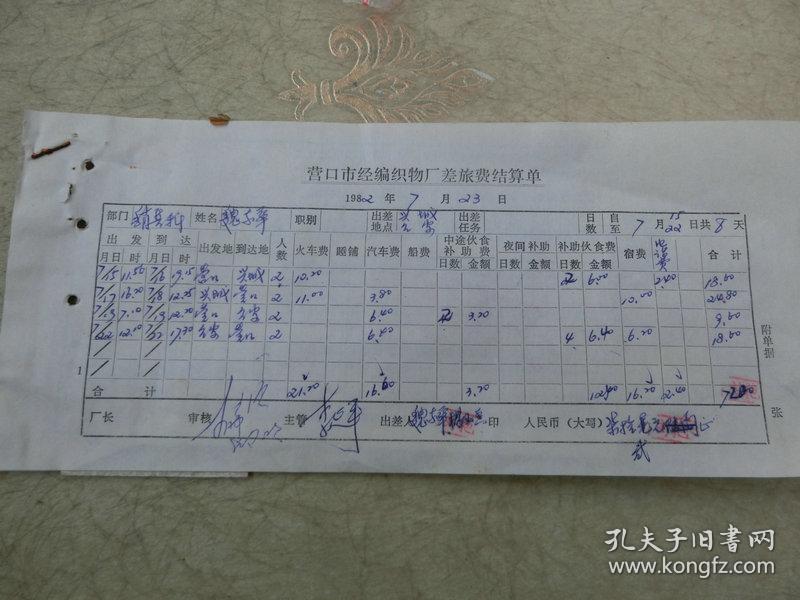 营口市经编织物厂差旅费结算单
1982 年 7 月 23 日
部门 销售科 姓名 职别 出差地点 兴城 出差任务 日数 自至 7 月 15 22 日共 8 天
出发 到达 出发地 到达地 人数 火车费 睡铺 汽车费 船费 中途伙食补助费 夜间补助 补助伙食费 宿费 合计
月日 时 月日 时 日数 金额 日数 金额 日数 金额
7/15 11.50 7/16 19.15 营口 兴城 2 10.20 2 6.00 2.40 18.60
7/17 16.20 7/18 12.25 兴城 营口 2 11.00 3.80 10.00 24.80
7/19 7.10 7/19 12.20 营口 2 6.40 2 3.20 9.60
7/22 12.10 7/22 17.30 营口 2 6.40 4 6.40 6.20
合计 21.20 16.60 3.20 16.20 2.40
附单据
张
1
厂长 审核 主管 出差人 印 人民币（大写）
贰
孔夫子旧书网
www.kongfz.com